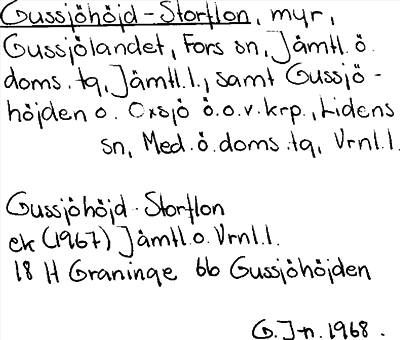 Gussjöhöjd-Storflon, myr,
Gussjölandet, Fors sn, Jämtl.ö.
doms.tg, Jämtl.l., samt Gussjö-
höjden o. Oxsjö ö.o.v.krp., Lidens
sn, Med.ö.doms.tg, Vrnl.l.
Gussjöhöjd-Storflon
ek (1967) Jämtl.o.Vrnl.l.
18 H Graninge 6b Gussjöhöjden
G.J-n.1968.